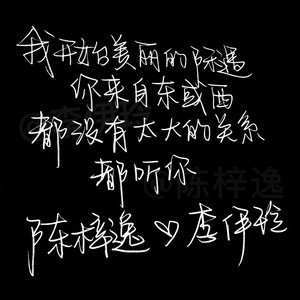 我开始美丽的际遇
你来自东或西
都没有太大的关系
都听你
陈梓逸♡李伊玲
@陈梓逸